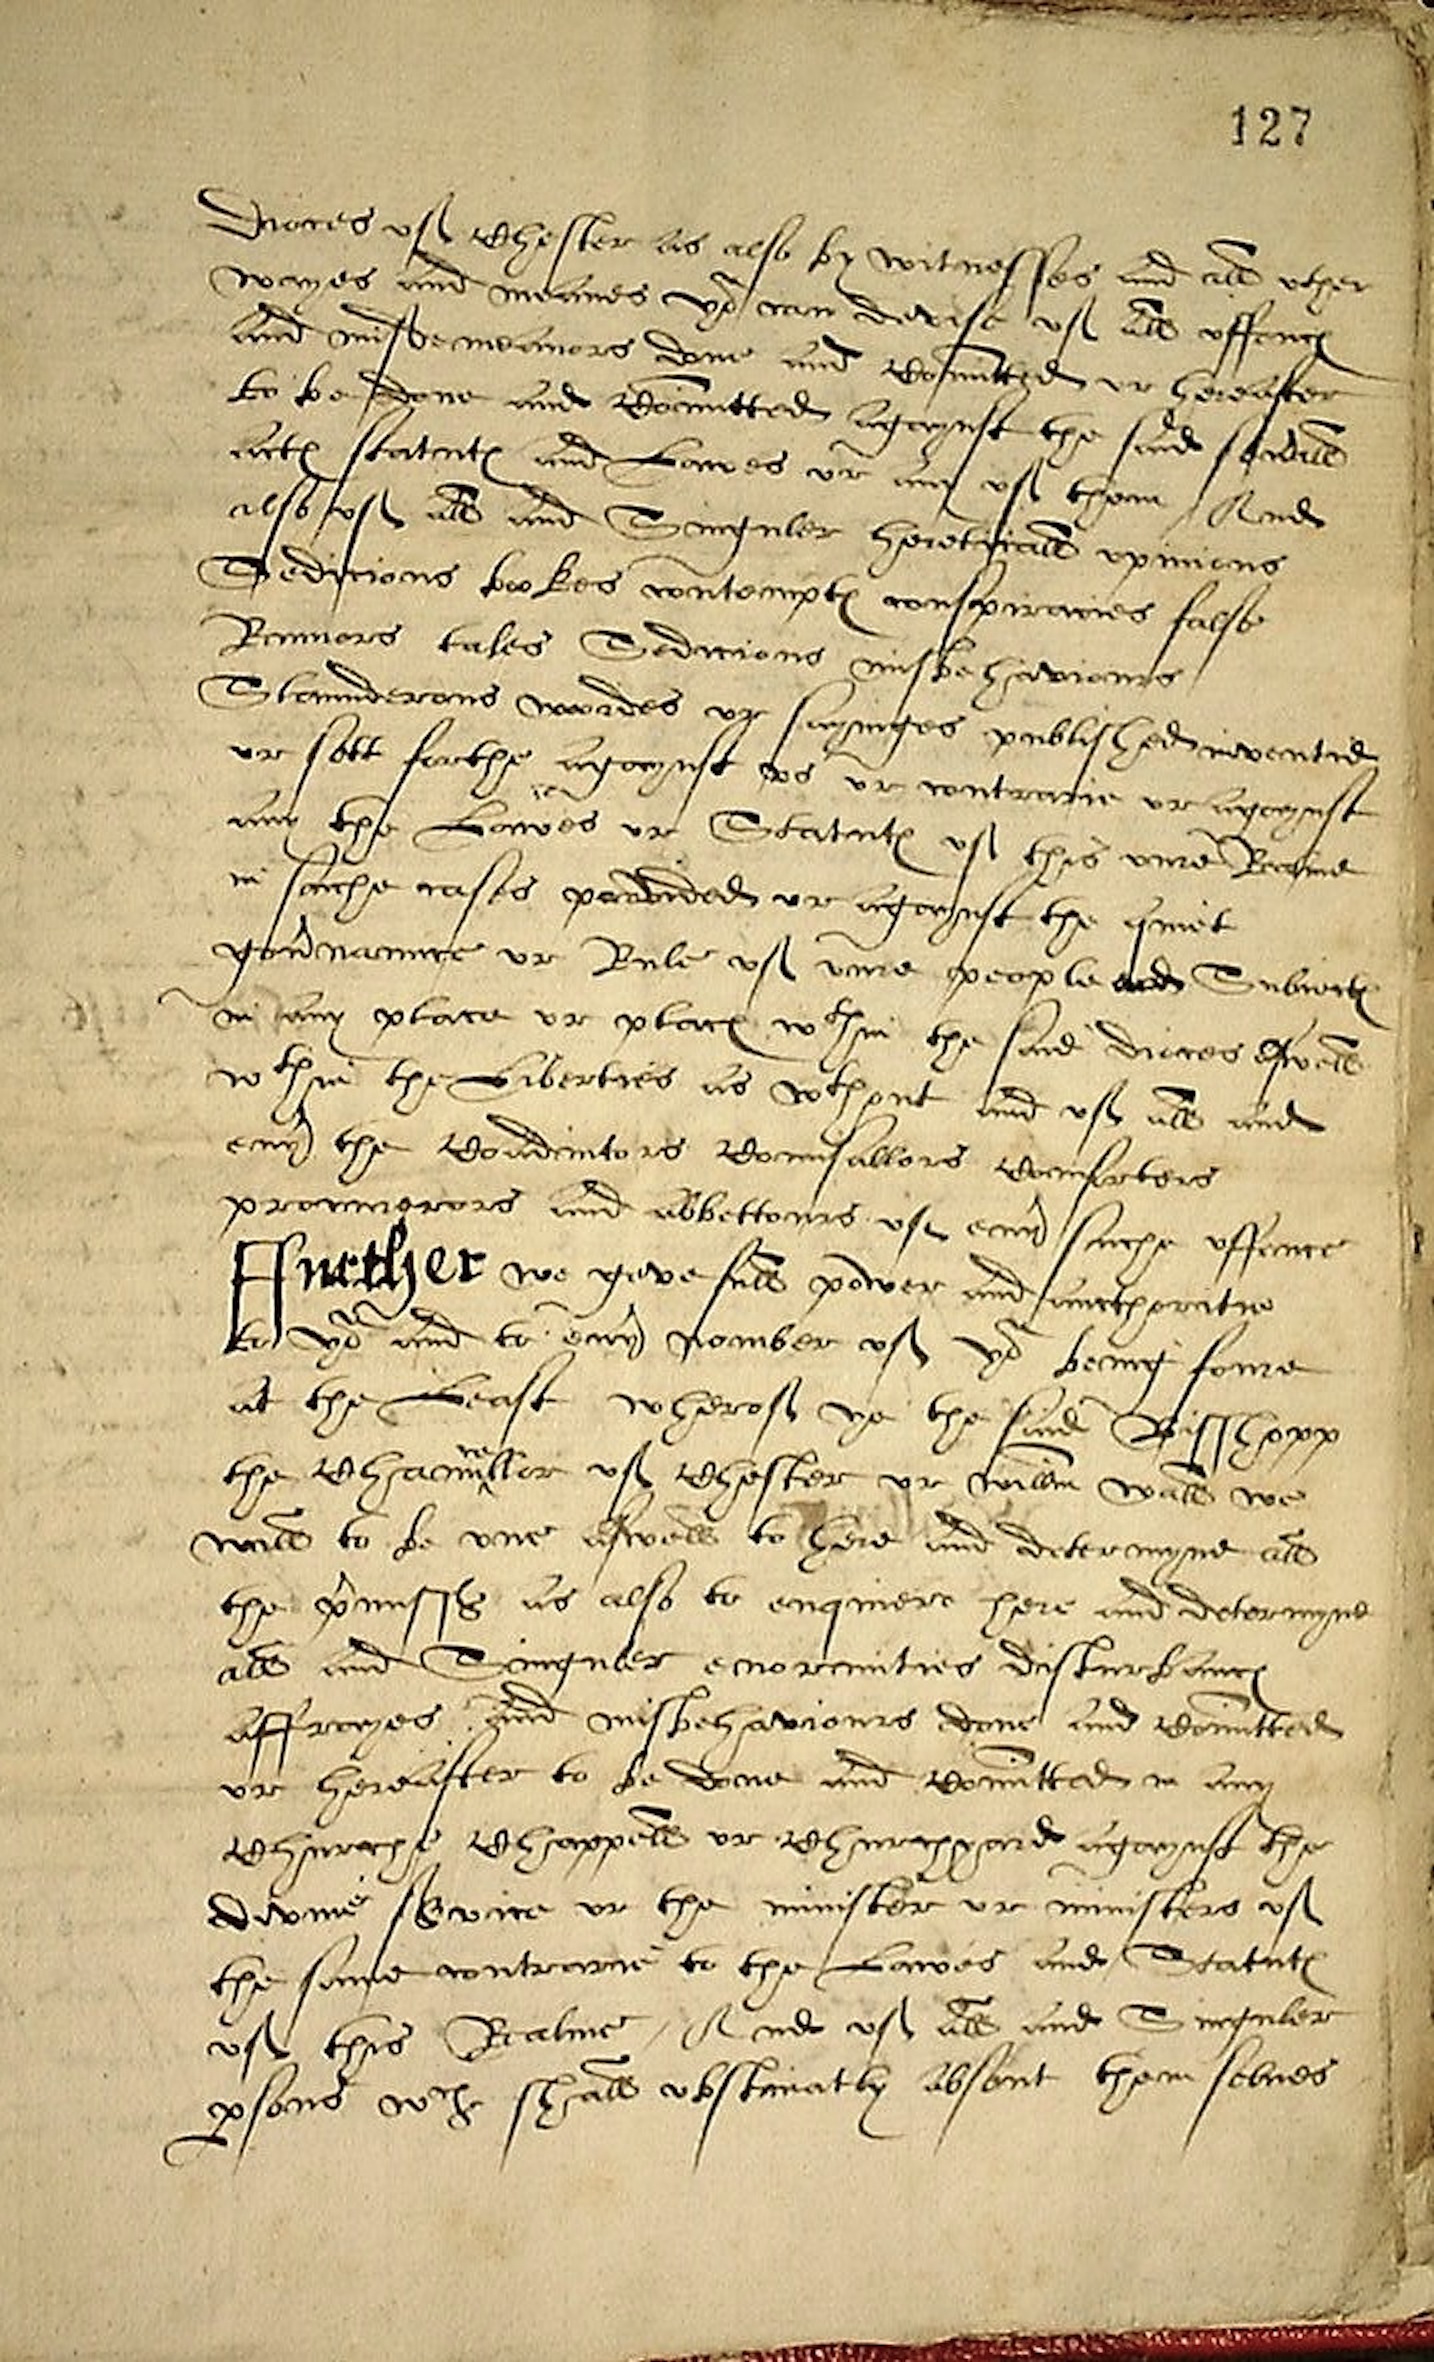 127
Dioces of Chester as also by witnesses and all other
wayes and meanes yo can devise of all offenc
and misdemeanors done and Comitted or hereafter
to be done and Comitted agaynst the said sevall
acts statuts and Lawes or any of them And
also of all and Singuler hereticall opinions
Sedicious bookes contempts conspiracies false
Rumors tales Sedicious misbehaviours
Slaunderous wordes or sayinges published invented
or sett forthe agaynst us or contrarie or agaynst
any the Lawes or Statuts of this oure Realme
in suche cases provided or agaynst the quiet
gounaunce or Rule of oure people and Subiects
in any place or places wthin the said dioces aswell
wthin the Liberties as wthout and of all and
euy the Coadiutors Counsallors Comforters
procurerors and abbettours of euy suche offence
Further we geve full power and aucthoritie
to yo and to euy nomber of yo being foure
at the Least wherof ye the said Bisshopp
the Chauncellor of Chester or Willm Wall we
will to be one aswell to here and determyne all
the pmisses as also to enquiere here and determyne
all and Singuler enormities disturbancs
affrayes and misbehaviours done and Comitted
or hereafter to be done and Comitted in any
Churche Chappell or Churchyard agaynst the
divine service or the minister or ministers of
the same contrarie to the Lawes and Statuts
of this Realme / And of all and Singuler
psons wch shall obstinatly absent them selues